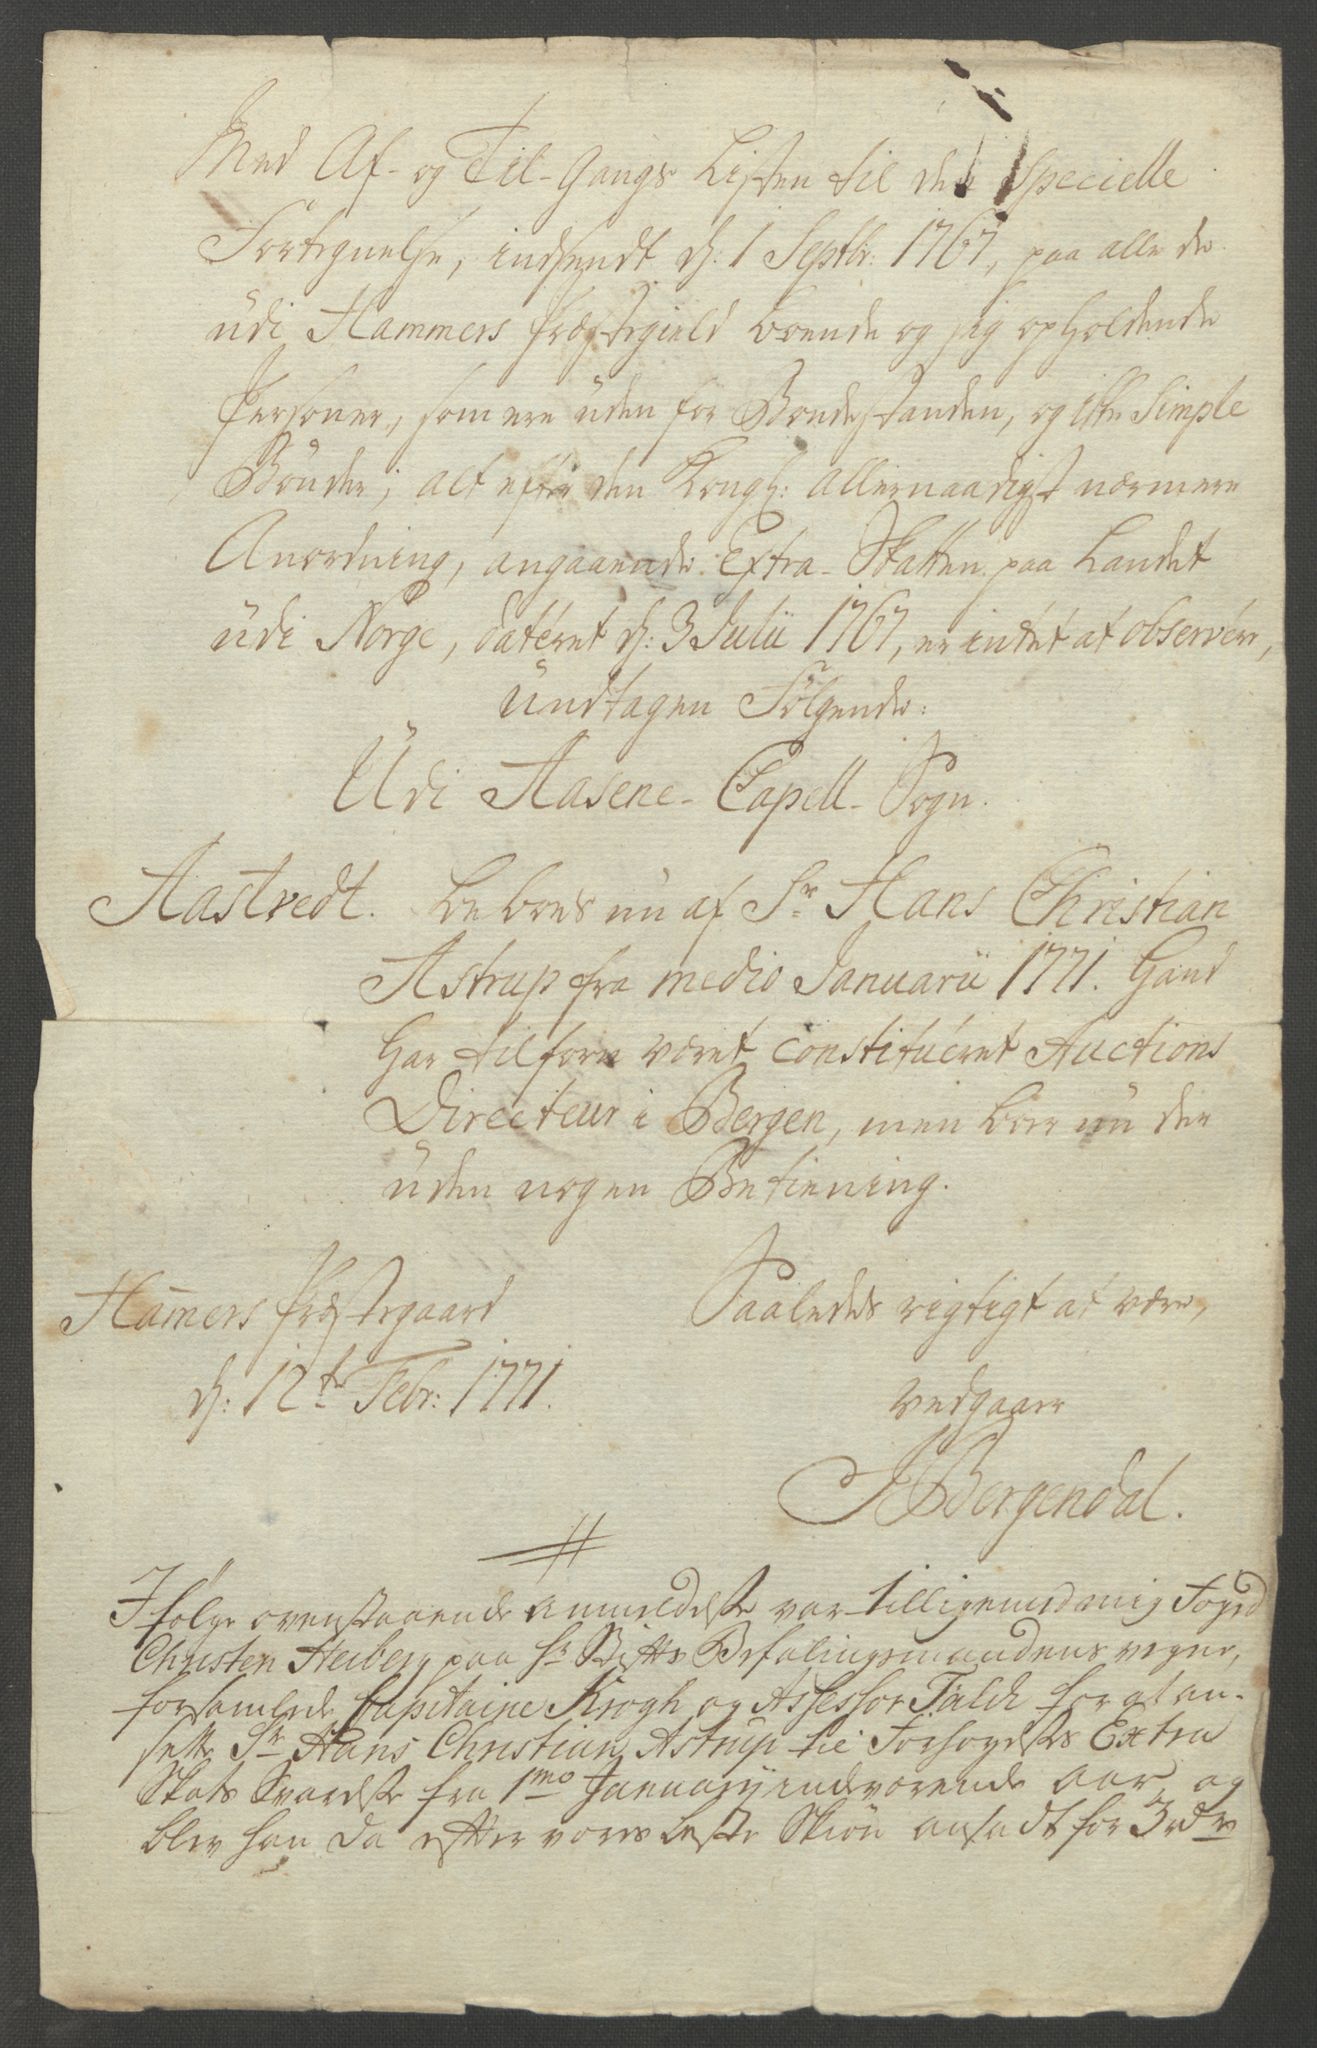 Med Af- og Til-Gangs Listen til den Specielle
Fortegnelse, indsendt d: 1 Septbr: 1767, paa alle de
udi Hammers Præstegield boende og sig opholdende
Personer, som ere uden for Bondestanden, og ikke Simple
Bönder; alt efter den Kongl: allernaadigst nærmere
Anordning, angaaende Extra-Skatten paa Landet
udi Norge, datéret d: 3 Julii 1767, er intet at observére,
undtagen Fölgende:
Udi Aasene-Capell-Sogn.
Aastvedt. beboes nu af Sr Hans Christian
Astrup fra medio Januarii 1771. Hand
har tilforn været constituéret Auctions
Directeur i Bergen, men boer nu der
uden nogen Betiening.
Hamers Præstegaard
d: 12te Febr: 1771.
Saaledes rigtigt at være,
vedgaaer
Bergendal.
Ifölge ovenstaaende anmeldelse var tilligemed mig Foged
Christen Heiberg paa Hr Stifts Befalingsmandens vegne,
forsamlede Capitaine Krogh og Assessor Fülck for at an-
sette Sr Hans Christian Astrup til Forhøyelses Extra
Skats Svarelse fra 1mo Januarij indeværende aar, og
blev han da efter vores beste Skiön ansadt for 3 rdr